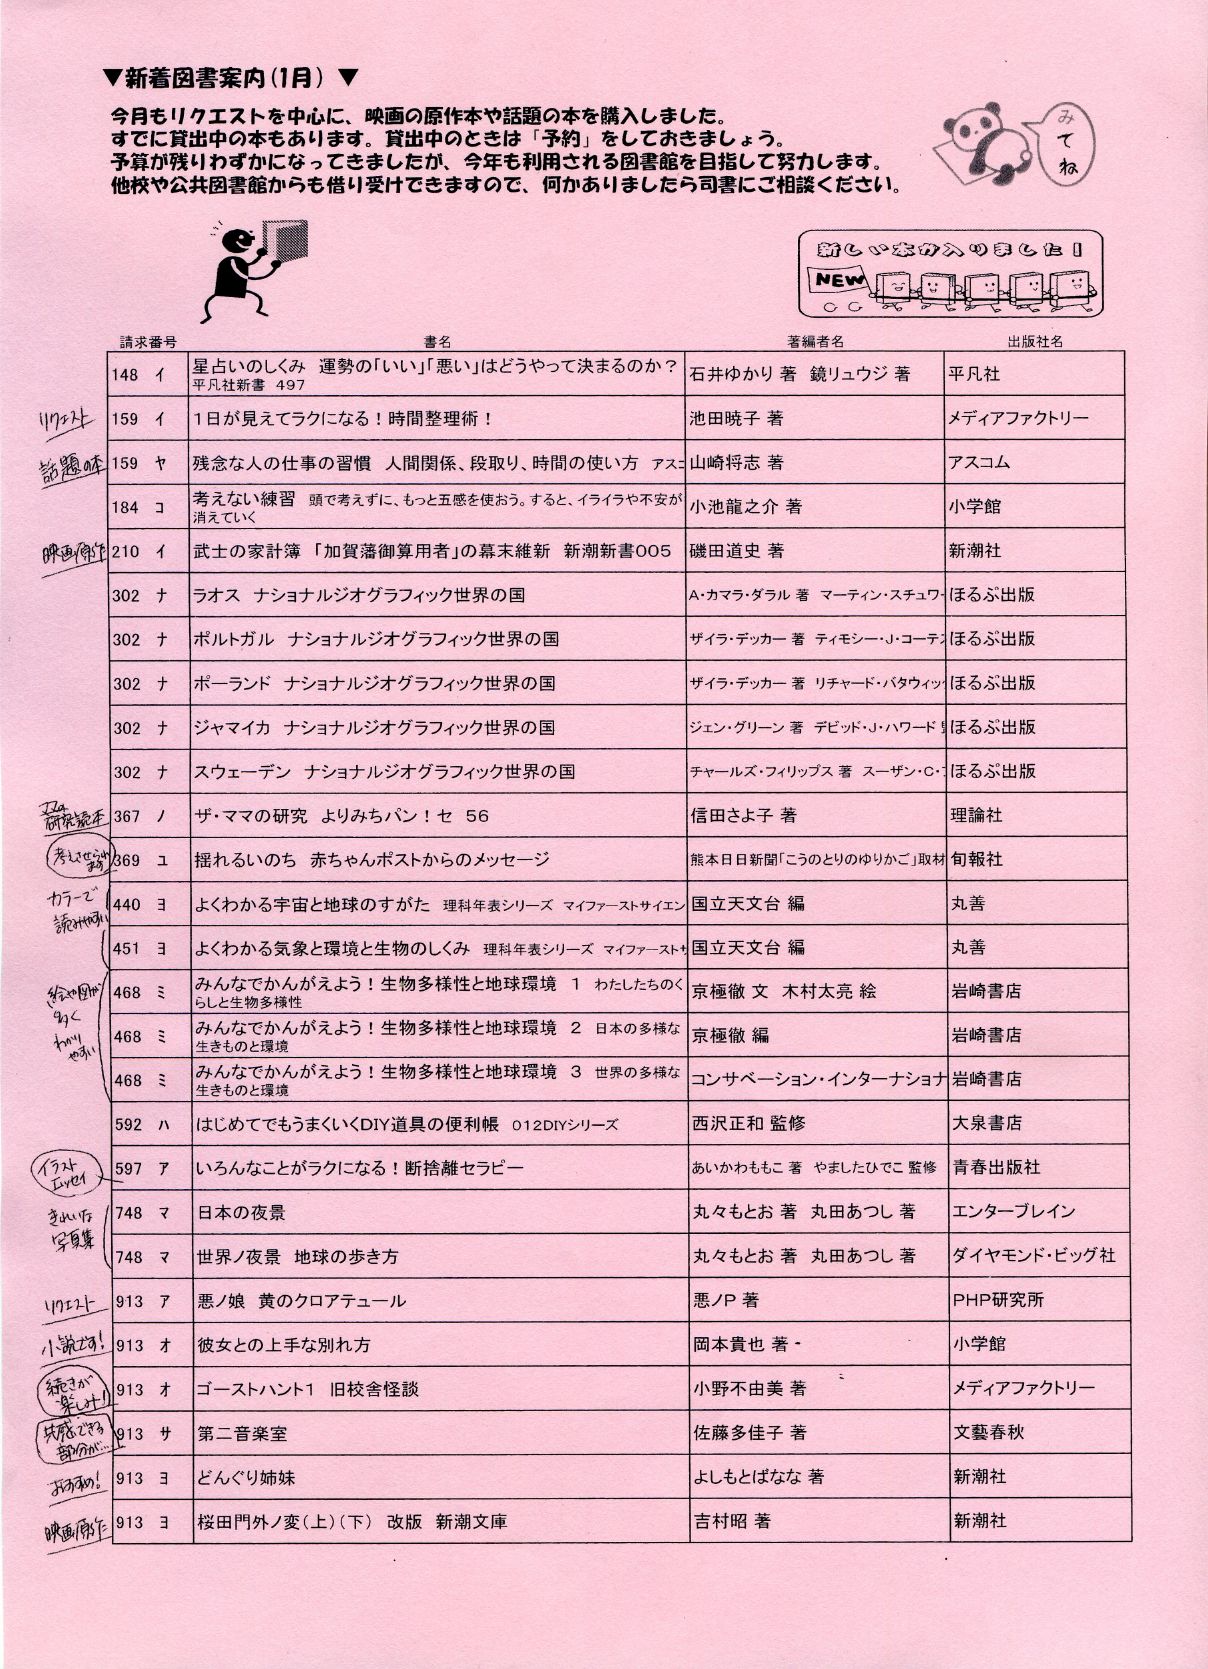 ▼新着図書案内(1月) ▼
今月もリクエストを中心に、映画の原作本や話題の本を購入しました。
すでに貸出中の本もあります。貸出中のときは「予約」をしておきましょう。
予算が残りわずかになってきましたが、今年も利用される図書館を目指して努力します。
他校や公共図書館からも借り受けできますので、何かありましたら司書にご相談ください。
みてね
新しい本が入りました!
NEW
請求番号 書名 著編者名 出版社名
148 イ 星占いのしくみ 運勢の「いい」「悪い」はどうやって決まるのか? 石井ゆかり 著 鏡リュウジ 著 平凡社
平凡社新書 497
リクエスト 159 イ 1日が見えてラクになる!時間整理術! 池田暁子 著 メディアファクトリー
話題の本 159 ヤ 残念な人の仕事の習慣 人間関係、段取り、時間の使い方 アスコ 山崎将志 著 アスコム
184 コ 考えない練習 頭で考えずに、もっと五感を使おう。すると、イライラや不安が 小池龍之介 著 小学館
消えていく
映画原作 210 イ 武士の家計簿 「加賀藩御算用者」の幕末維新 新潮新書005 磯田道史 著 新潮社
302 ナ ラオス ナショナルジオグラフィック世界の国 A・カマラ・ダラル 著 マーティン・スチュワー ほるぷ出版
302 ナ ポルトガル ナショナルジオグラフィック世界の国 ザイラ・デッカー 著 ティモシー・J・コーテス ほるぷ出版
302 ナ ポーランド ナショナルジオグラフィック世界の国 ザイラ・デッカー 著 リチャード・バタウィッ ほるぷ出版
302 ナ ジャマイカ ナショナルジオグラフィック世界の国 ジェン・グリーン 著 デビッド・J・ハワード ほるぷ出版
302 ナ スウェーデン ナショナルジオグラフィック世界の国 チャールズ・フィリップス 著 スーザン・C・ ほるぷ出版
ママの
研究読本 367 ノ ザ・ママの研究 よりみちパン!セ 56 信田さよ子 著 理論社
考えさせられます 369 ユ 揺れるいのち 赤ちゃんポストからのメッセージ 熊本日日新聞「こうのとりのゆりかご」取材 旬報社
カラーで
読みやすい 440 ヨ よくわかる宇宙と地球のすがた 理科年表シリーズ マイファーストサイエン 国立天文台 編 丸善
451 ヨ よくわかる気象と環境と生物のしくみ 理科年表シリーズ マイファーストサ 国立天文台 編 丸善
絵や図が
多く
わかり
やすい 468 ミ みんなでかんがえよう!生物多様性と地球環境 1 わたしたちのく 京極徹 文 木村太亮 絵 岩崎書店
らしと生物多様性
468 ミ みんなでかんがえよう!生物多様性と地球環境 2 日本の多様な 京極徹 編 岩崎書店
生きものと環境
468 ミ みんなでかんがえよう!生物多様性と地球環境 3 世界の多様な コンサベーション・インターナショナ 岩崎書店
生きものと環境
592 ハ はじめてでもうまくいくDIY道具の便利帳 012DIYシリーズ 西沢正和 監修 大泉書店
イラスト
エッセイ 597 ア いろんなことがラクになる!断捨離セラピー あいかわももこ 著 やましたひでこ 監修 青春出版社
きれいな
写真集 748 マ 日本の夜景 丸々もとお 著 丸田あつし 著 エンターブレイン
748 マ 世界ノ夜景 地球の歩き方 丸々もとお 著 丸田あつし 著 ダイヤモンド・ビッグ社
リクエスト 913 ア 悪ノ娘 黄のクロアテュール 悪ノP 著 PHP研究所
小説です! 913 オ 彼女との上手な別れ方 岡本貴也 著 小学館
続きが
楽しみ!! 913 オ ゴーストハント1 旧校舎怪談 小野不由美 著 メディアファクトリー
共感できる
部分が… 913 サ 第二音楽室 佐藤多佳子 著 文藝春秋
おすすめ! 913 ヨ どんぐり姉妹 よしもとばなな 著 新潮社
映画原作 913 ヨ 桜田門外ノ変(上)(下) 改版 新潮文庫 吉村昭 著 新潮社